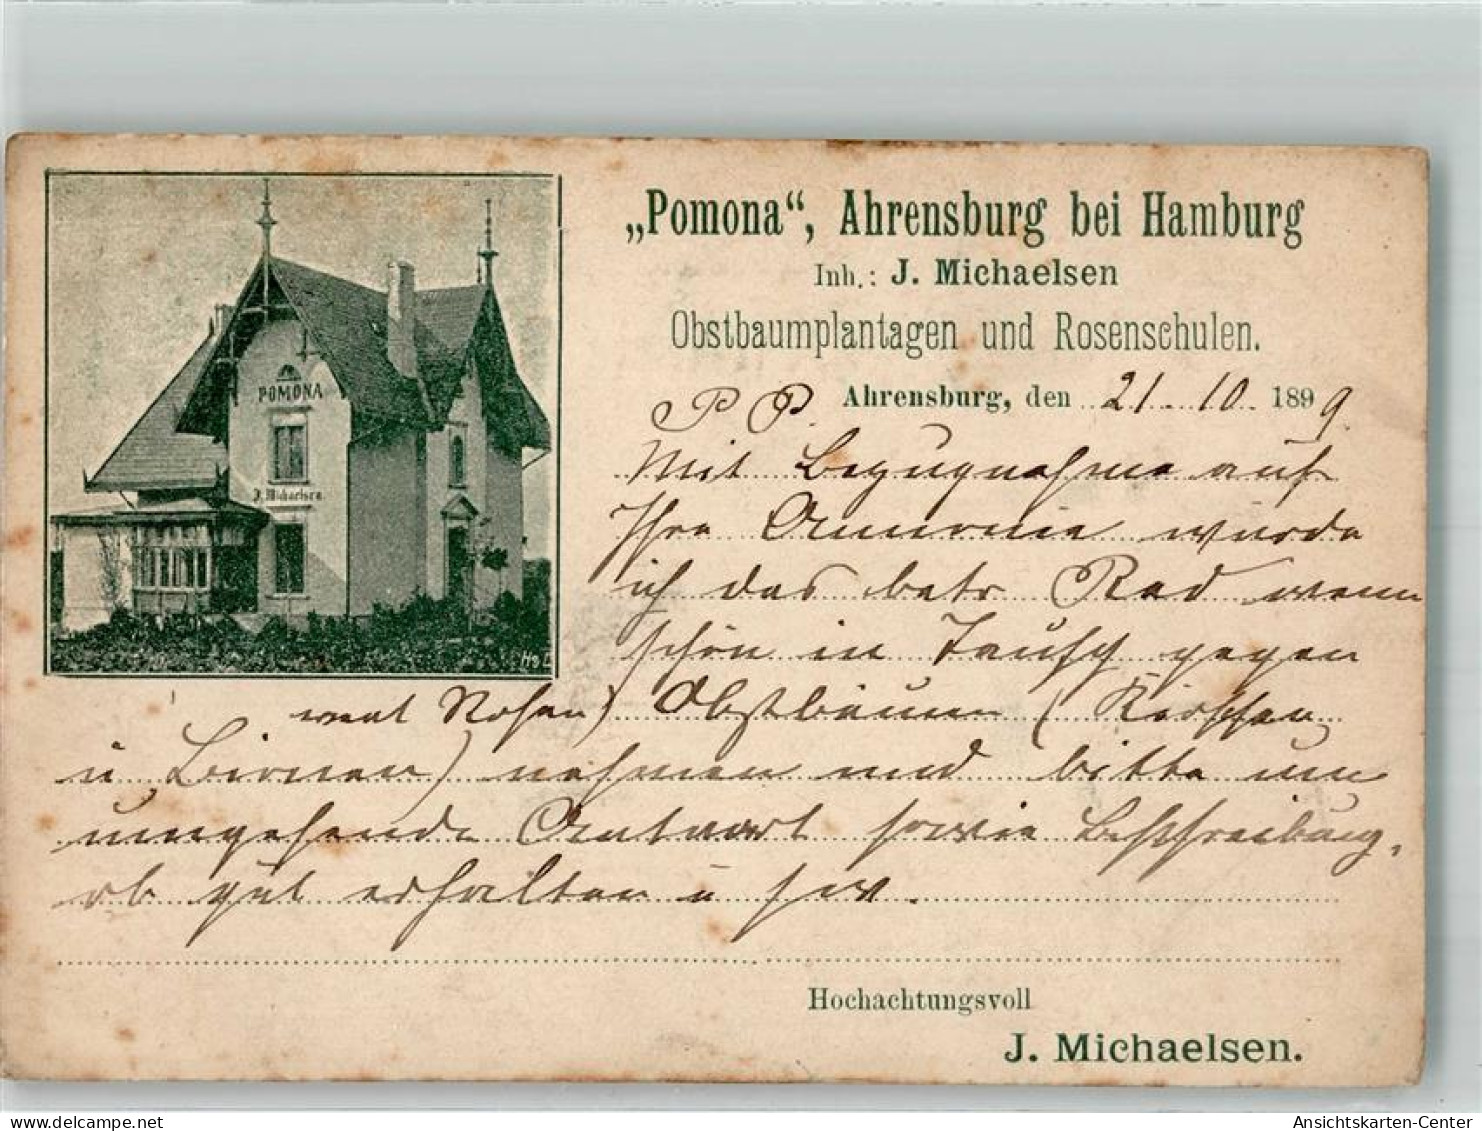 „Pomona“, Ahrensburg bei Hamburg
Inh.: J. Michaelsen
Obstbaumplantagen und Rosenschulen.
Ahrensburg, den 21. 10. 1899.
P. P.
POMONA
J. Michaelsen.
Mit Bezugnahme auf
Ihre Annonce würde
ich das betr. Rad wenn
schön in Tausch gegen
Rosen) Obstbäume (Kirschen
u Birnen) nehmen und bitte um
umgehende Antwort sowie Beschreibung,
ob gut erhalten u
Hochachtungsvoll
J. Michaelsen.
Ansichtskarten-Center